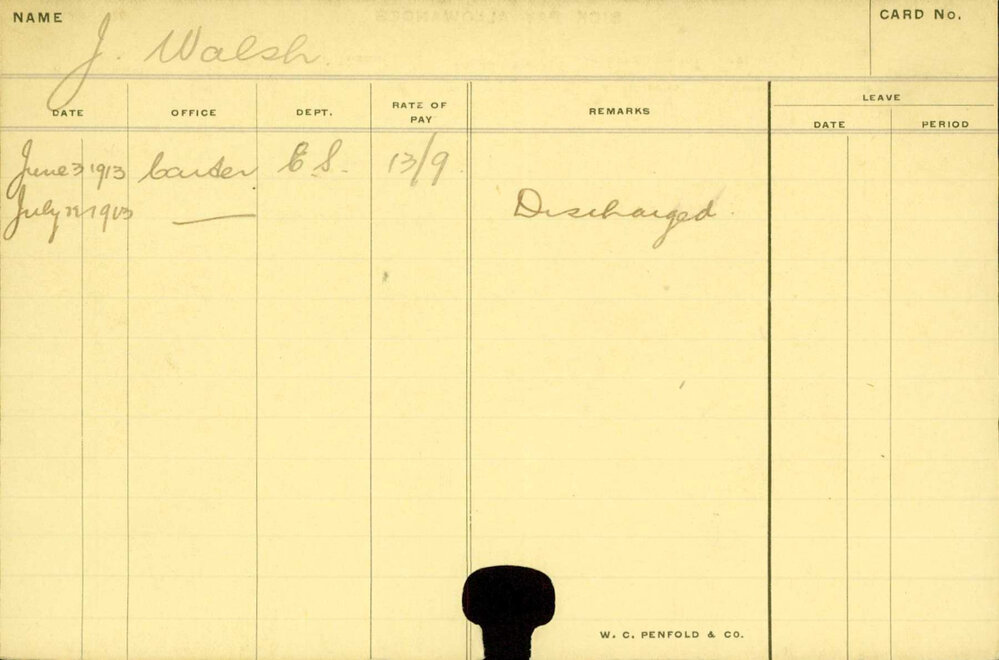 NAME J. Walsh CARD No.
DATE OFFICE DEPT. RATE OF PAY REMARKS LEAVE
DATE PERIOD
June 3 1913 Carter E S. 13/9
July 1913 — Discharged.
W. C. PENFOLD & CO.